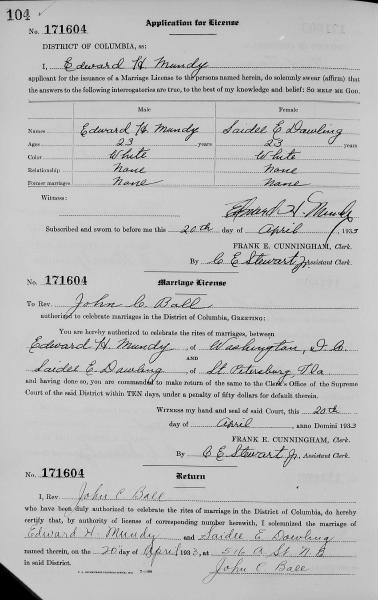 104
Application for License
No. 171604
DISTRICT OF COLUMBIA, ss:
I, Edward H. Mundy
applicant for the issuance of a Marriage License to the persons named herein, do solemnly swear (affirm) that
the answers to the following interrogatories are true, to the best of my knowledge and belief: SO HELP ME GOD.
Male Female
Names Edward H. Mundy Saidee E Dowling
Ages 23 years 23 years
Color White White
Relationship None None
Former marriages None None
Witness:
Edward H. Mundy
Subscribed and sworn to before me this 20th day of April, 1933
FRANK E. CUNNINGHAM, Clerk.
By C E Stewart Jr Assistant Clerk.
No. 171604 Marriage License
To Rev. John C. Ball
authorized to celebrate marriages in the District of Columbia, GREETING:
You are hereby authorized to celebrate the rites of marriage, between
Edward H. Mundy, of Washington, D.C.
AND
Saidee E. Dowling of St Petersburg Fla
and having done so, you are commanded to make return of the same to the Clerk's Office of the Supreme
Court of the said District within TEN days, under a penalty of fifty dollars for default therein.
WITNESS my hand and seal of said Court, this 20th
day of April, anno Domini 1933
FRANK E. CUNNINGHAM, Clerk.
By C E Stewart Jr. Assistant Clerk.
No. 171604 Return
I, Rev. John C Ball
who have been duly authorized to celebrate the rites of marriage in the District of Columbia, do hereby
certify that, by authority of license of corresponding number herewith, I solemnized the marriage of
Edward H. Mundy and Saidee E Dowling
named therein, on the 20 day of April 1933, at 516 A St. N.E
in said District.
John C Ball